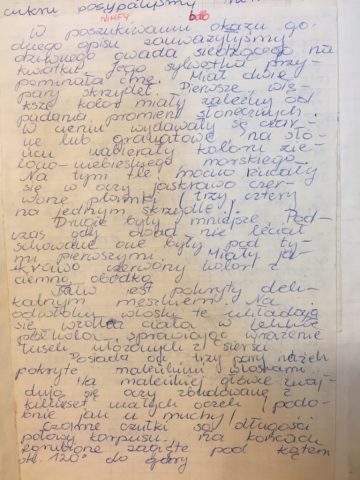 cukru posypaliśmy
NIMFY bdb
W poszukiwaniu okazu go-
dnego opisu zauważyliśmy
dziwnego owada siedzącego na
kwiatku. Jego sylwetka przy-
pominała ćmę. Miał dwie
pary skrzydeł. Pierwsze, wię-
ksze kolor miały zależny od
padania promieni słonecznych.
W cieniu wydawały się czar-
ne lub granatowe, na sło-
ńcu nabierały koloru zie-
lono-niebieskiego morskiego.
Na tym tle mocno rzucały
się w oczy jaskrawo czer-
wone plamki (trzy, cztery
na jednym skrzydle).
Drugie były mniejsze. Pod-
czas gdy owad nie leciał
schowane one były pod ty-
mi pierwszymi. Miały ja-
skrawo czerwony kolor z
ciemną obwódką.
Tułów jest pokryty deli-
katnym meszkiem. Na
odwłoku włoski te układają
się wzdłuż ciała w
półkola, sprawiając wrażenie
łusek ułożonych z sierści.
Posiada on trzy pary nóżek
pokryte maleńkimi włoskami.
Na maleńkiej głowie znaj-
dują się oczy zbudowane z
kilkuset małych oczek (podo-
bnie jak u muchy).
Czarne czułki są długości
połowy korpusu. Na końcach
zagięte pod kątem
ok. 120° do góry